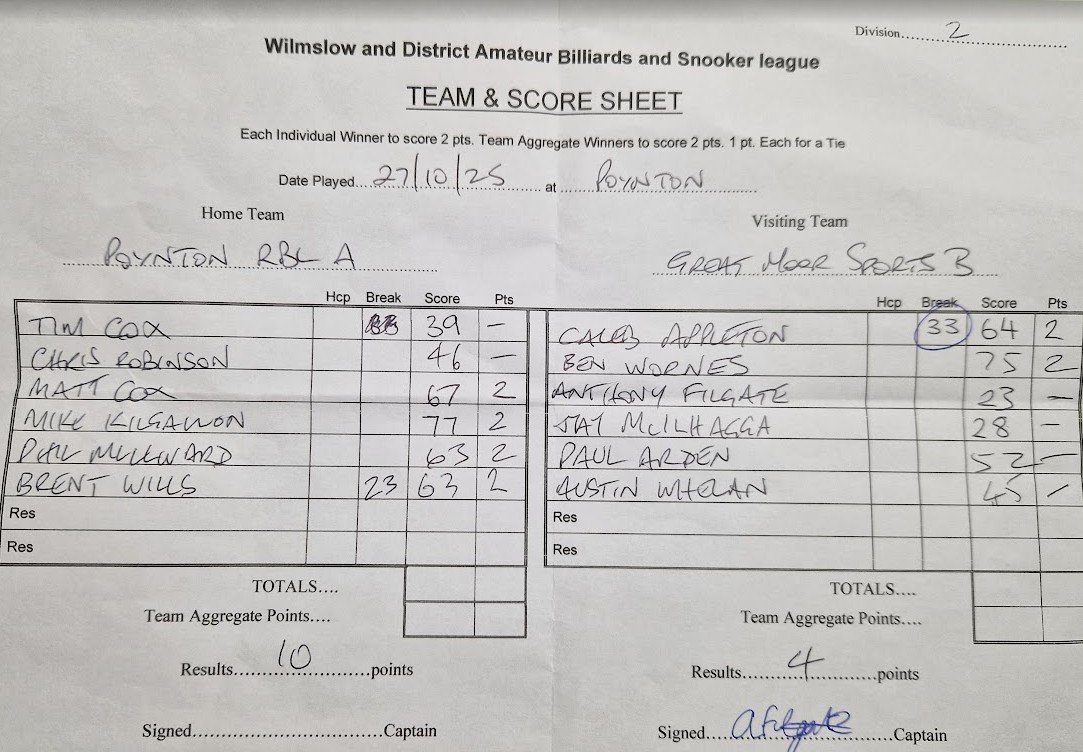 Division...... 2
Wilmslow and District Amateur Billiards and Snooker league
TEAM & SCORE SHEET
Each Individual Winner to score 2 pts. Team Aggregate Winners to score 2 pts. 1 pt. Each for a Tie
Date Played... 27/10/25 ... at ... POYNTON
Home Team Visiting Team
POYNTON RBL A GREAT MOOR SPORTS B
Hcp Break Score Pts Hcp Break Score Pts
TIM COX 39 – CALEB APPLETON 33 64 2
CHRIS ROBINSON 46 – BEN WORNES 75 2
MATT COX 67 2 ANTHONY FILGATE 23 –
MIKE KILGANNON 77 2 JAY McILHAGGA 28 –
PHIL MILLWARD 63 2 PAUL ARDEN 52 –
BRENT WILLS 23 63 2 AUSTIN WHELAN 45 –
Res Res
Res Res
TOTALS.... TOTALS....
Team Aggregate Points.... Team Aggregate Points....
Results...... 10 ......points Results...... 4 ......points
Signed......Captain Signed.... a Filgate ......Captain